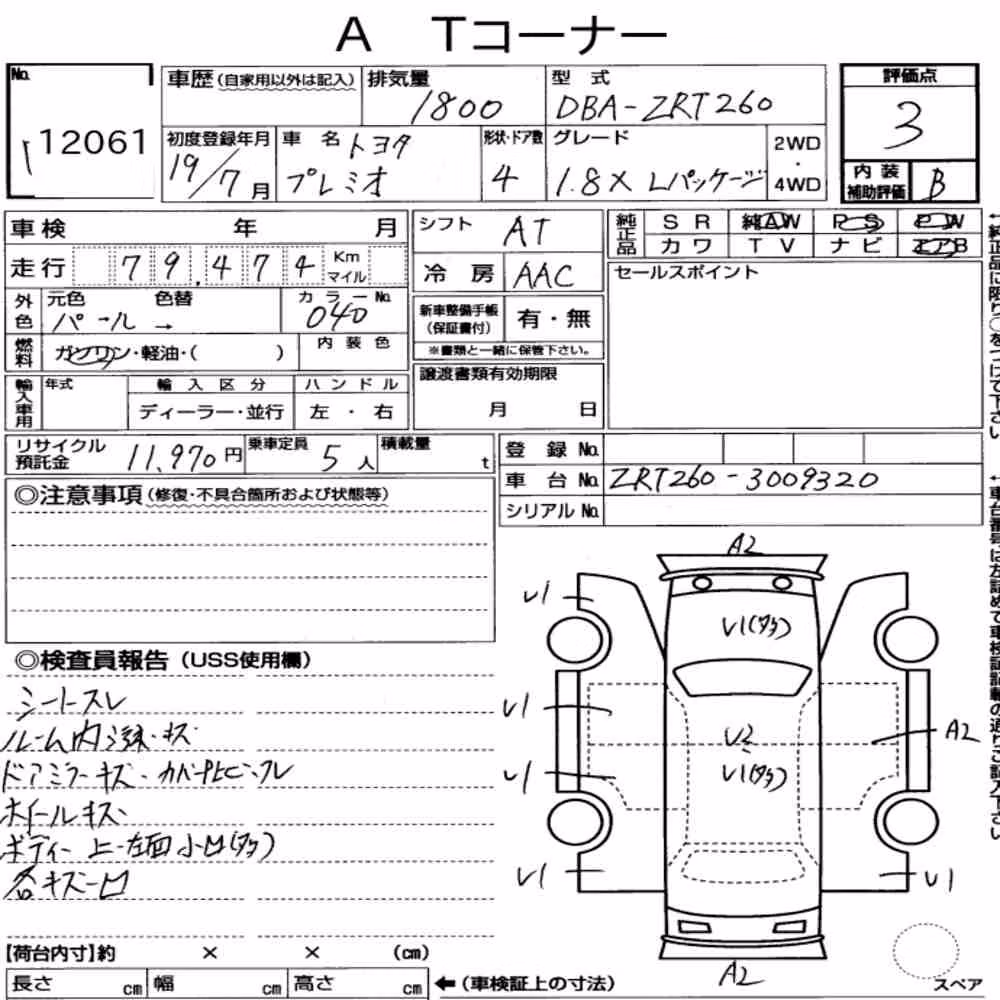 A Tコーナー
No.
12061
車歴(自家用以外は記入)
排気量
1800
型式
DBA-ZRT260
評価点
3
初度登録年月
19/7月
車名 トヨタ
プレミオ
形状・ドア数
4
グレード
1.8X Lパッケージ
2WD
・
4WD
内装
補助評価
B
車検 年 月
走行 79,474 Km マイル
外色 元色 色替
パール →
カラーNo.
040
燃料 ガソリン・軽油・( )
内装色
輸入車用 年式
輸入区分
ディーラー・並行
ハンドル
左・右
シフト AT
冷房 AAC
新車整備手帳
(保証書付)
有・無
※書類と一緒に保管下さい。
譲渡書類有効期限
月 日
純正品 SR 純AW PS PW
カワ TV ナビ エアB
セールスポイント
←純正品に限り○をつけて下さい
リサイクル
預託金
11,970円
乗車定員
5人
積載量
t
登録No.
車台No. ZRT260-3009320
シリアルNo.
←車台番号は左詰めで車検証記載の通りご記入下さい
◎注意事項(修復・不具合箇所および状態等)
◎検査員報告(USS使用欄)
シートスレ
ルーム内汚れ・キズ
ドアミラーキズ・カバー
ホイールキズ
ボディー上・左面小凹(タタ)
各キズ凹
A2
U1
U1(タタ)
U1
U2
U1(タタ)
A2
U1
U1
U1
A2
スペア
【荷台内寸】約 × × (cm)
長さ cm 幅 cm 高さ cm
←(車検証上の寸法)